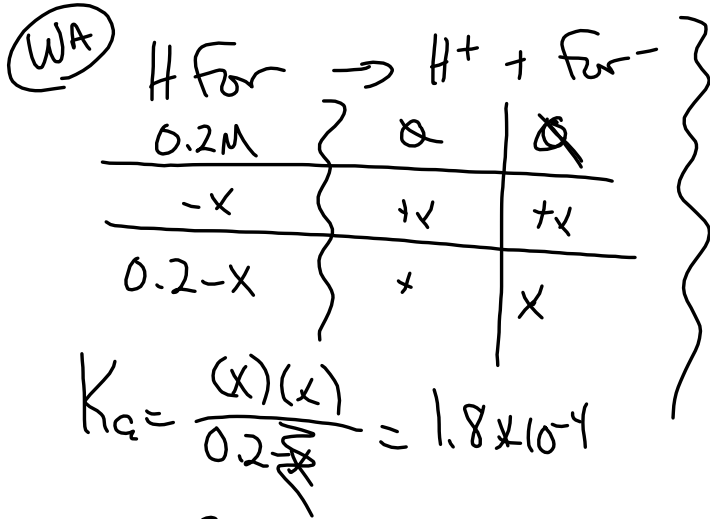 WA
HFor → H+ + For-
0.2M 0 0
-x +x +x
0.2-x x x
Ka = (x)(x) / 0.2-x = 1.8x10-4